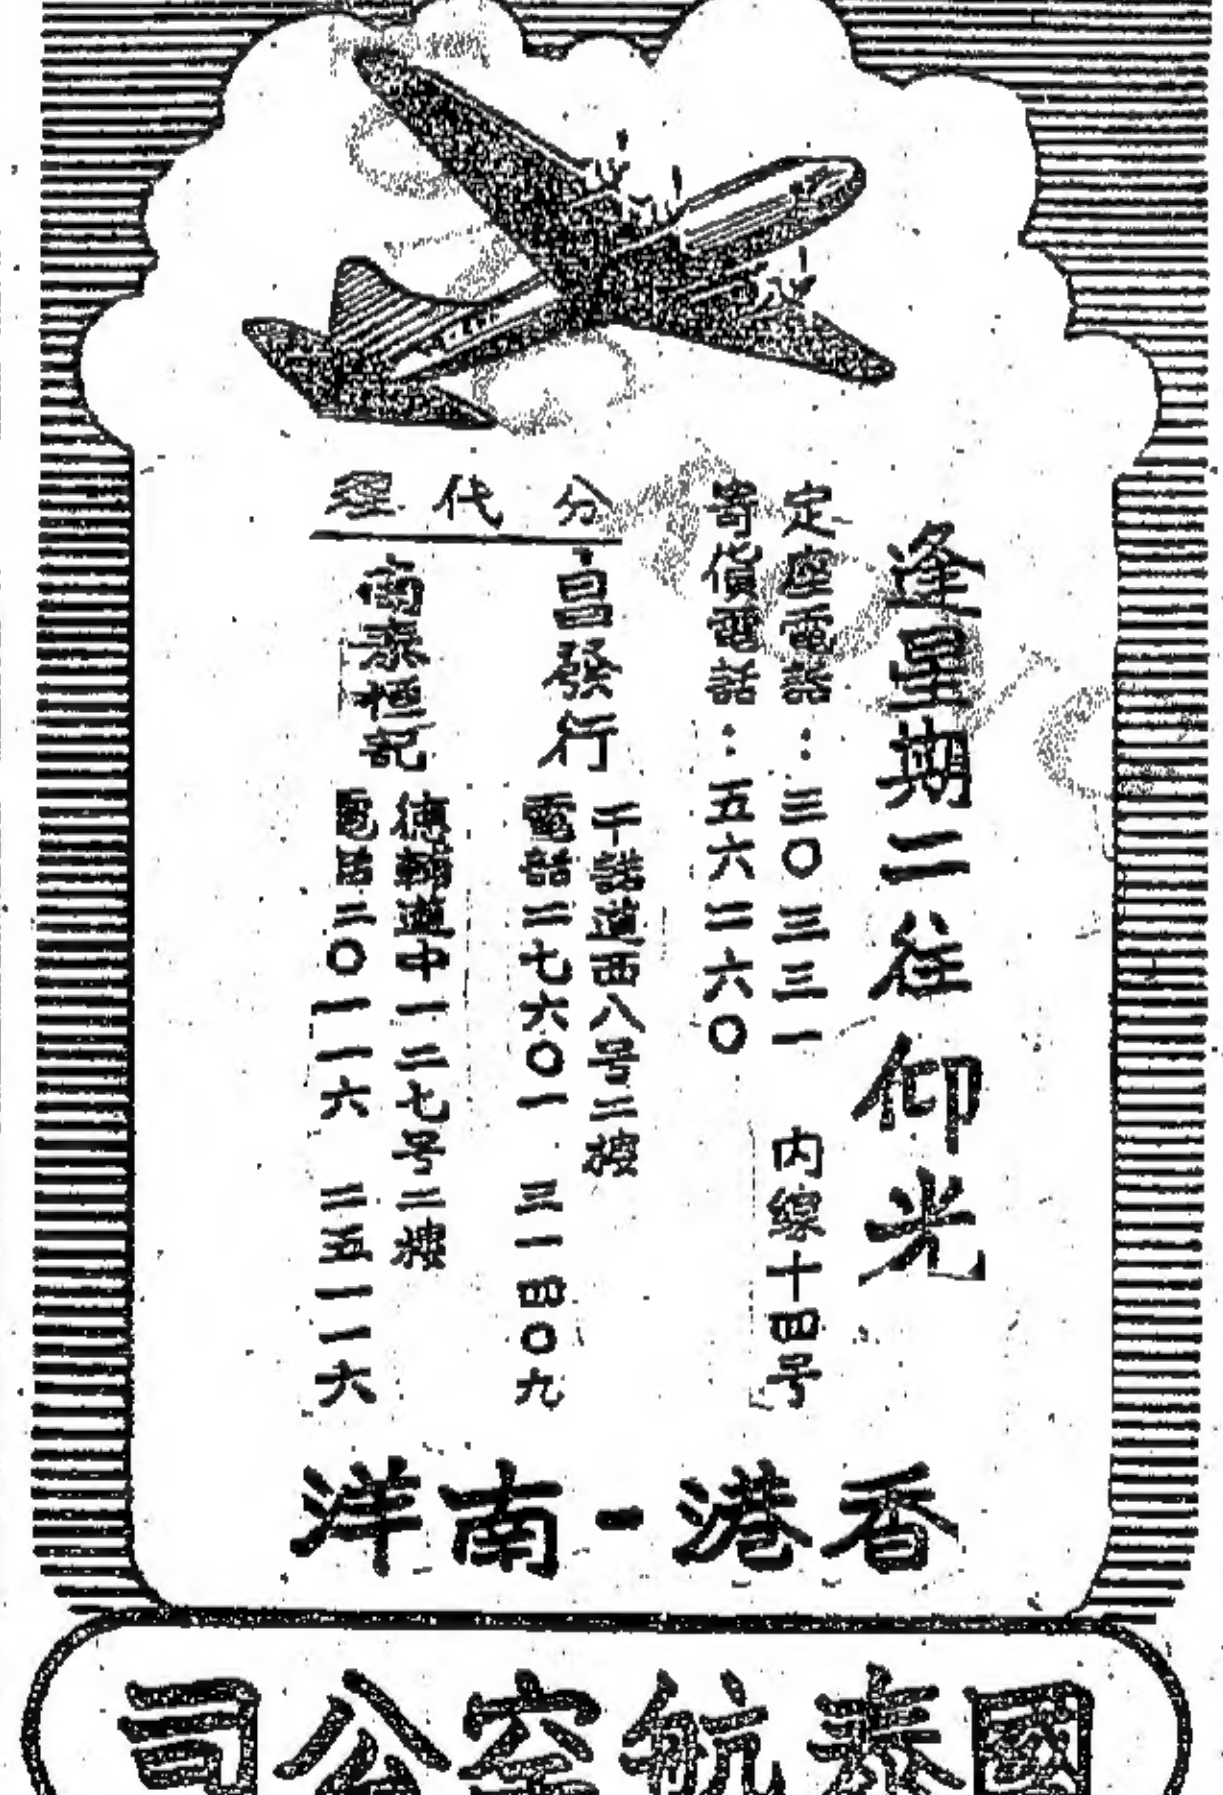 逢星期二往仰光
定座電話：三〇三三一 內線十四号
寄貨電話：五六二六〇
分代理
昌發行
干諾道西八号三樓
電話二七六〇一 三一四〇九
萬泰恒記
德輔道中一三七号三樓
電話二〇一一六 三五一一六
香港-南洋
國泰航空公司